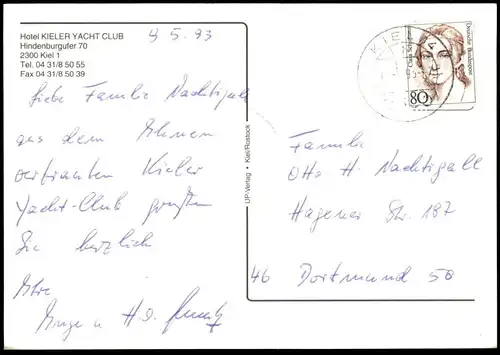 Hotel KIELER YACHT CLUB
Hindenburgufer 70
2300 Kiel 1
Tel. 04 31/8 50 55
Fax 04 31/8 50 39
9 5. 93
Liebe Familie Nachtigall
aus dem Ihnen
vertrauten Kieler
Yacht-Club grüßen
Sie herzlich
Ihre
Inge u H.D.
UP-Verlag • Kiel/Rostock
KIEL
Deutsche Bundespost
80
Familie
Otto H. Nachtigall
Hagener Str. 187
46 Dortmund 50